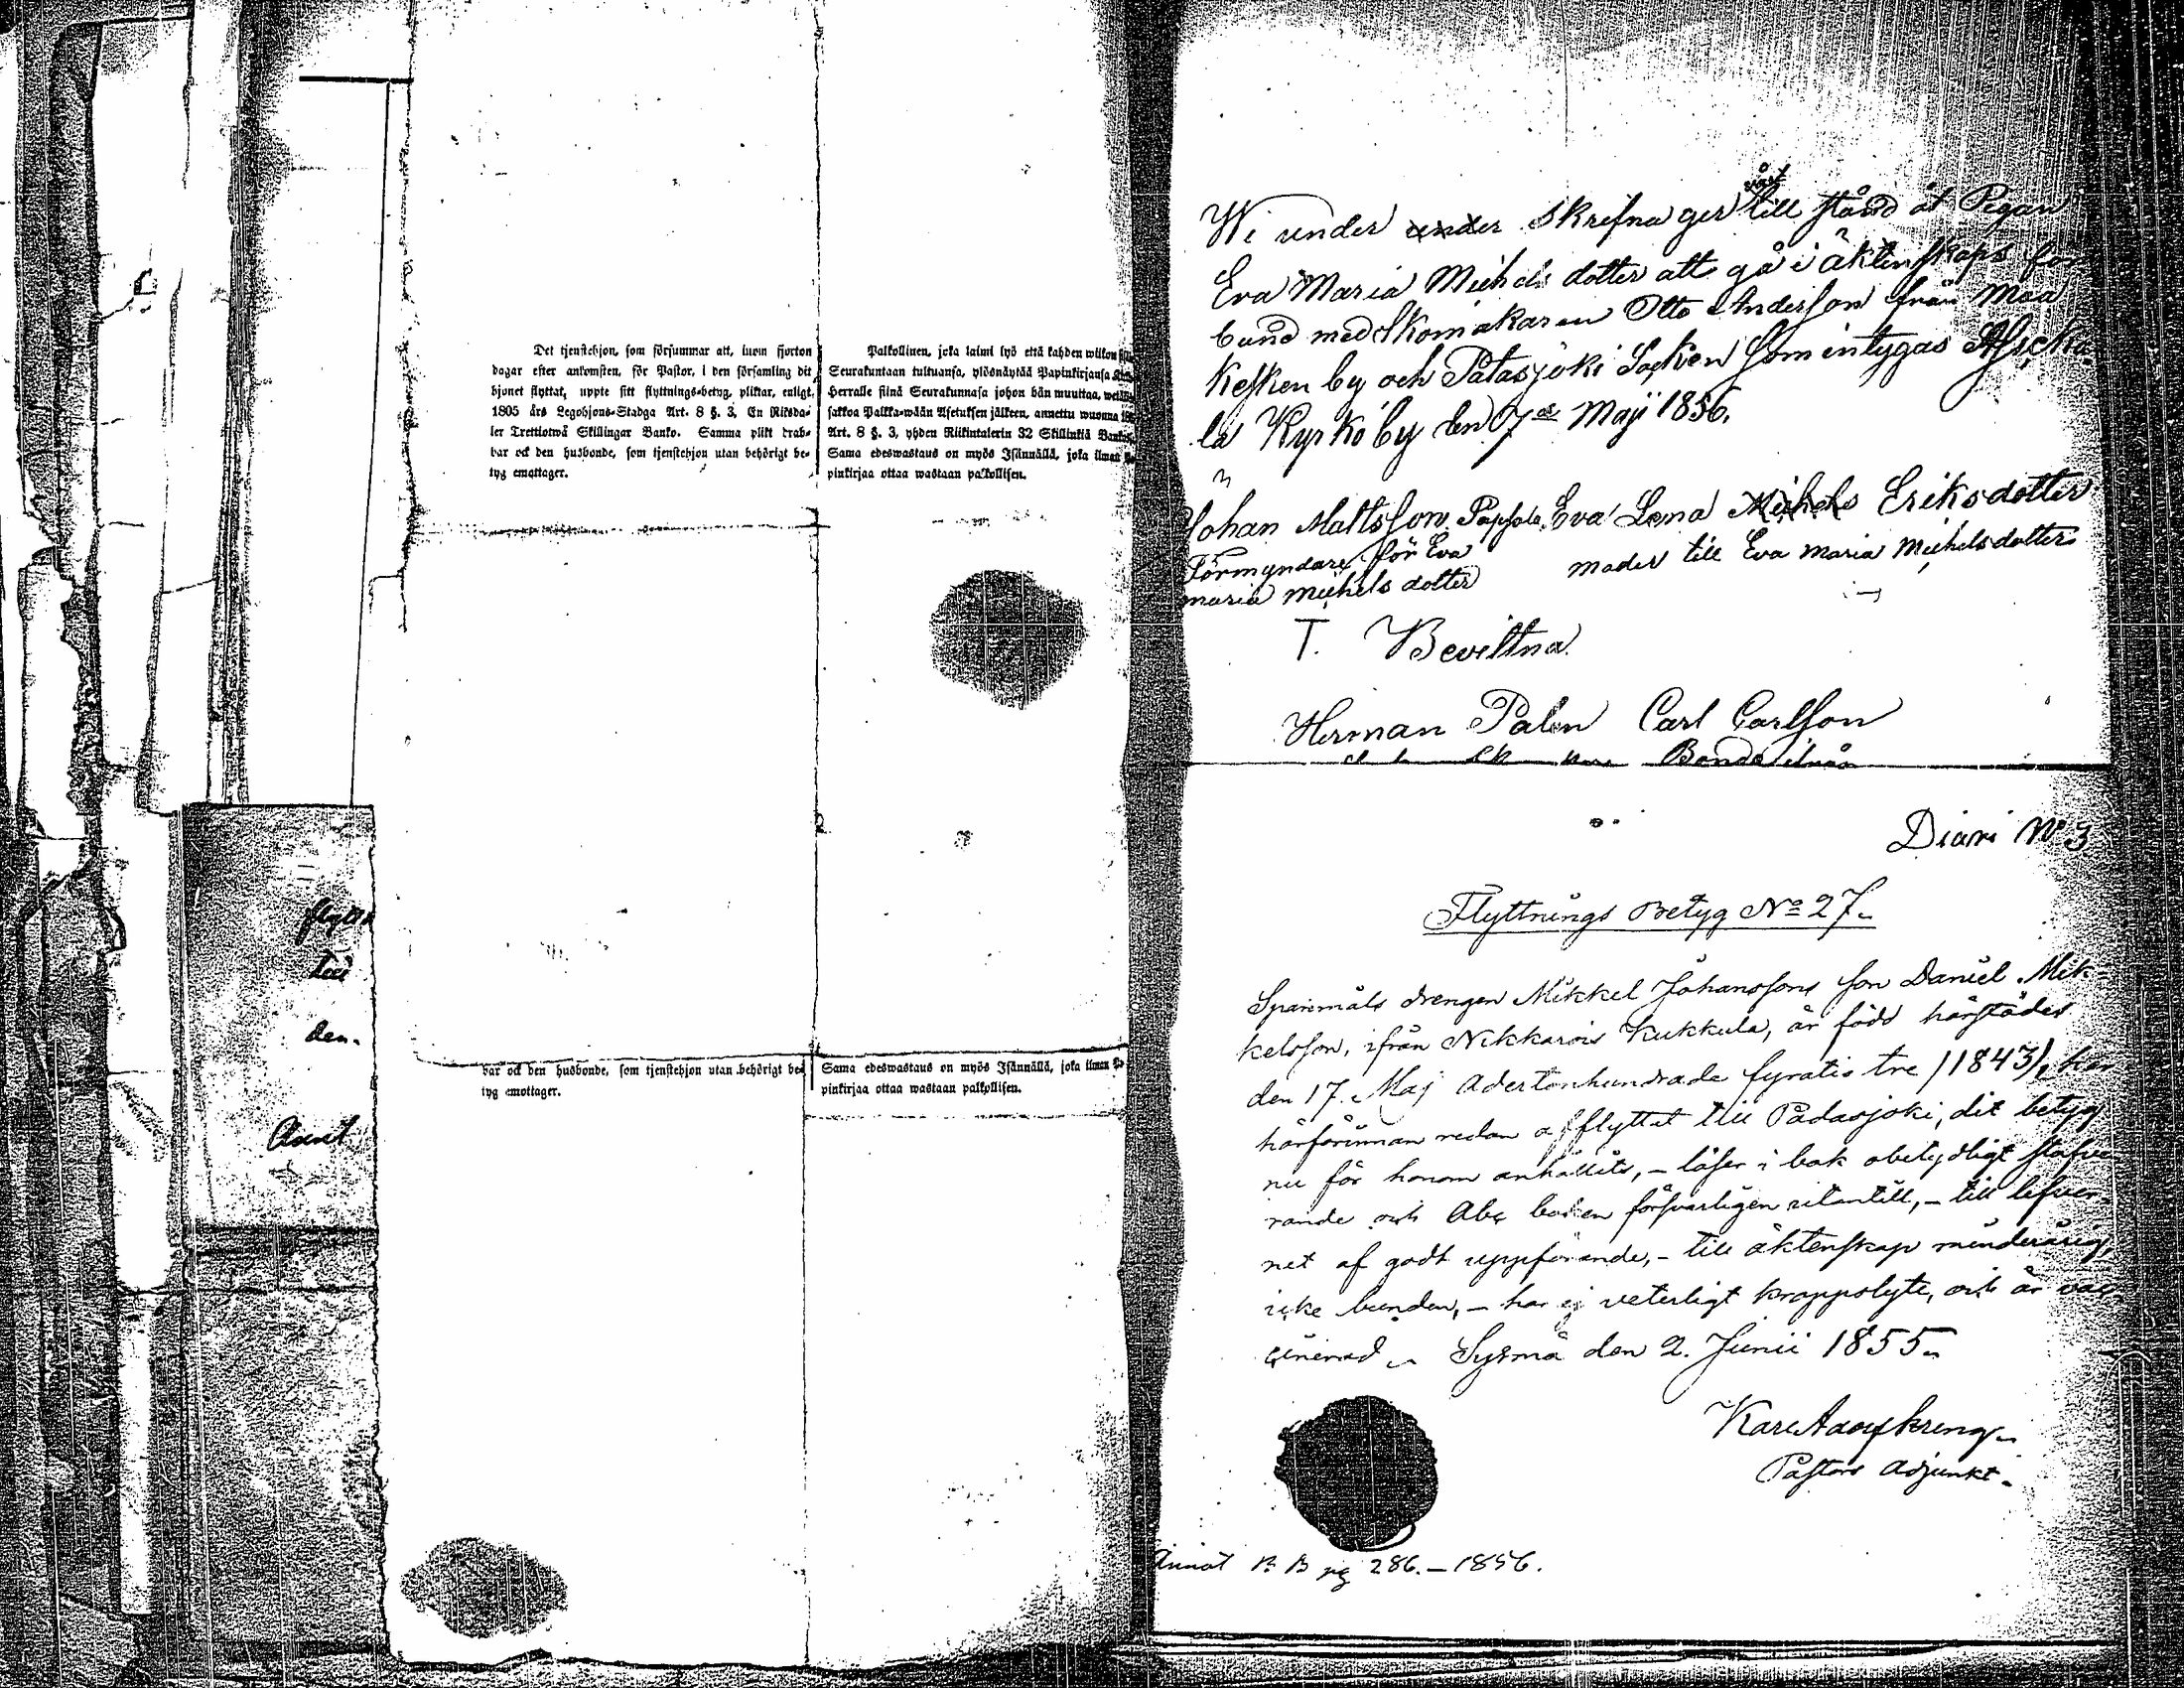 flytt
den.
Annot
Det tjenstehjon, som försummar att, inom fjorton
dagar efter ankomsten, för Pastor, i den församling dit
hjonet flyttat, uppte sitt flyttnings-betyg, pliktar, enligt
1805 års Legohjons-Stadga Art. 8 §. 3, En Riksda-
ler Trettiotwå Skillingar Banko. Samma plikt drab-
bar ock den husbonde, som tjenstehjon utan behörigt be-
tyg emottager.
Palkollinen, joka laimi lyö että kahden wiikon
Seurakuntaan tultuansa, ylösnäytää Papinkirjansa
Herralle siinä Seurakunnasa johon hän muuttaa, wetä
sakkoa Palkka-wään Asetuksen jälkeen, annettu wuonna
Art. 8 §. 3, yhden Riikintalerin 32 Skillinkiä Banko
Sama edeswastaus on myös Isännällä, joka ilman
pinkirjaa ottaa wastaan palkollisen.
bar ock den husbonde, som tjenstehjon utan behörigt be-
tyg emottager.
Sama edeswastaus on myös Isännällä, joka ilman
pinkirjaa ottaa wastaan palkollisen.
Wi under under skrifna ger vårt till stånd åt Pigan
Eva Maria Michels dotter att gå i äktenskaps för
bund med Skomakaren Otto Anderson från Maa
Kesken by och Patasjoki Socken som intygas Asicka
la Kyrko by den 7de Maji 1856.
Johan Mattsson Eva Lena Michels Eriksdotter
Förmyndare för Eva moder till Eva Maria Michelsdotter
maria michels dotter
T. Bevittna
Herman Palen Carl Carlson
Bonde
Diari No 3
Flyttnings Betyg No 27.
Sparemåls drengen Mikkel Johanssons son Daniel Mik-
kelsson, ifrån Nikkarois Kukkula, är född härstädes
den 17. Maj Adertonhundrade fyratio tre (1843), har
härförinnan redan afflyttat till Padasjoki, dit betyg
nu för honom anhållits, - läser i bok obetydligt stafve
rande och Abc boken försvarligen utantill, - till lefver-
net af godt uppförande, - till äktenskap minderårig,
icke bunden, - har ej veterligt kroppslyte, och är vac-
cinerad. Sysmä den 2. Junii 1855.
Pastors Adjunkt.
Annot K B pg 286. - 1856.